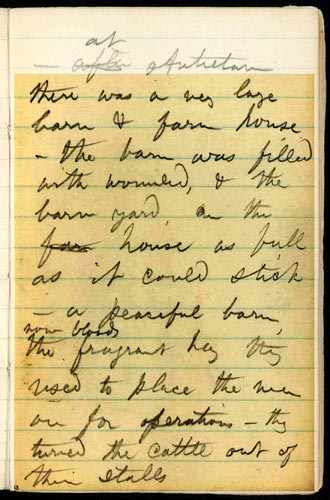 at
— after Antietam
there was a very large
barn & farm house
– the barn was filled
with wounded, & the
barn yard, an the
far house as full
as it could stick
— a peaceful barn,
now bloody
the fragrant hay they
used to place the men
on for operations — they
turned the cattle out of
their stalls